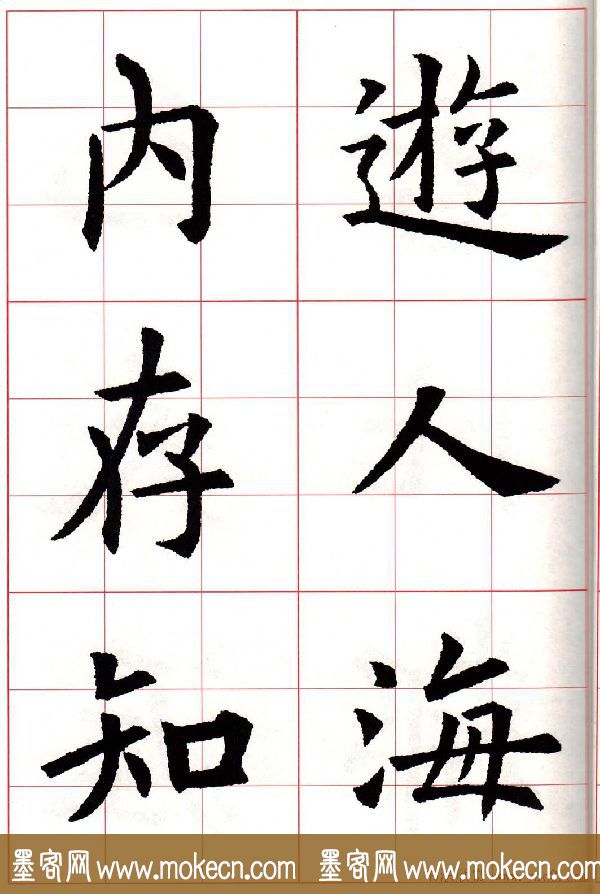 遊人海
内存知
墨客网 www.mokecn.com 墨客网 www.mokecn.com